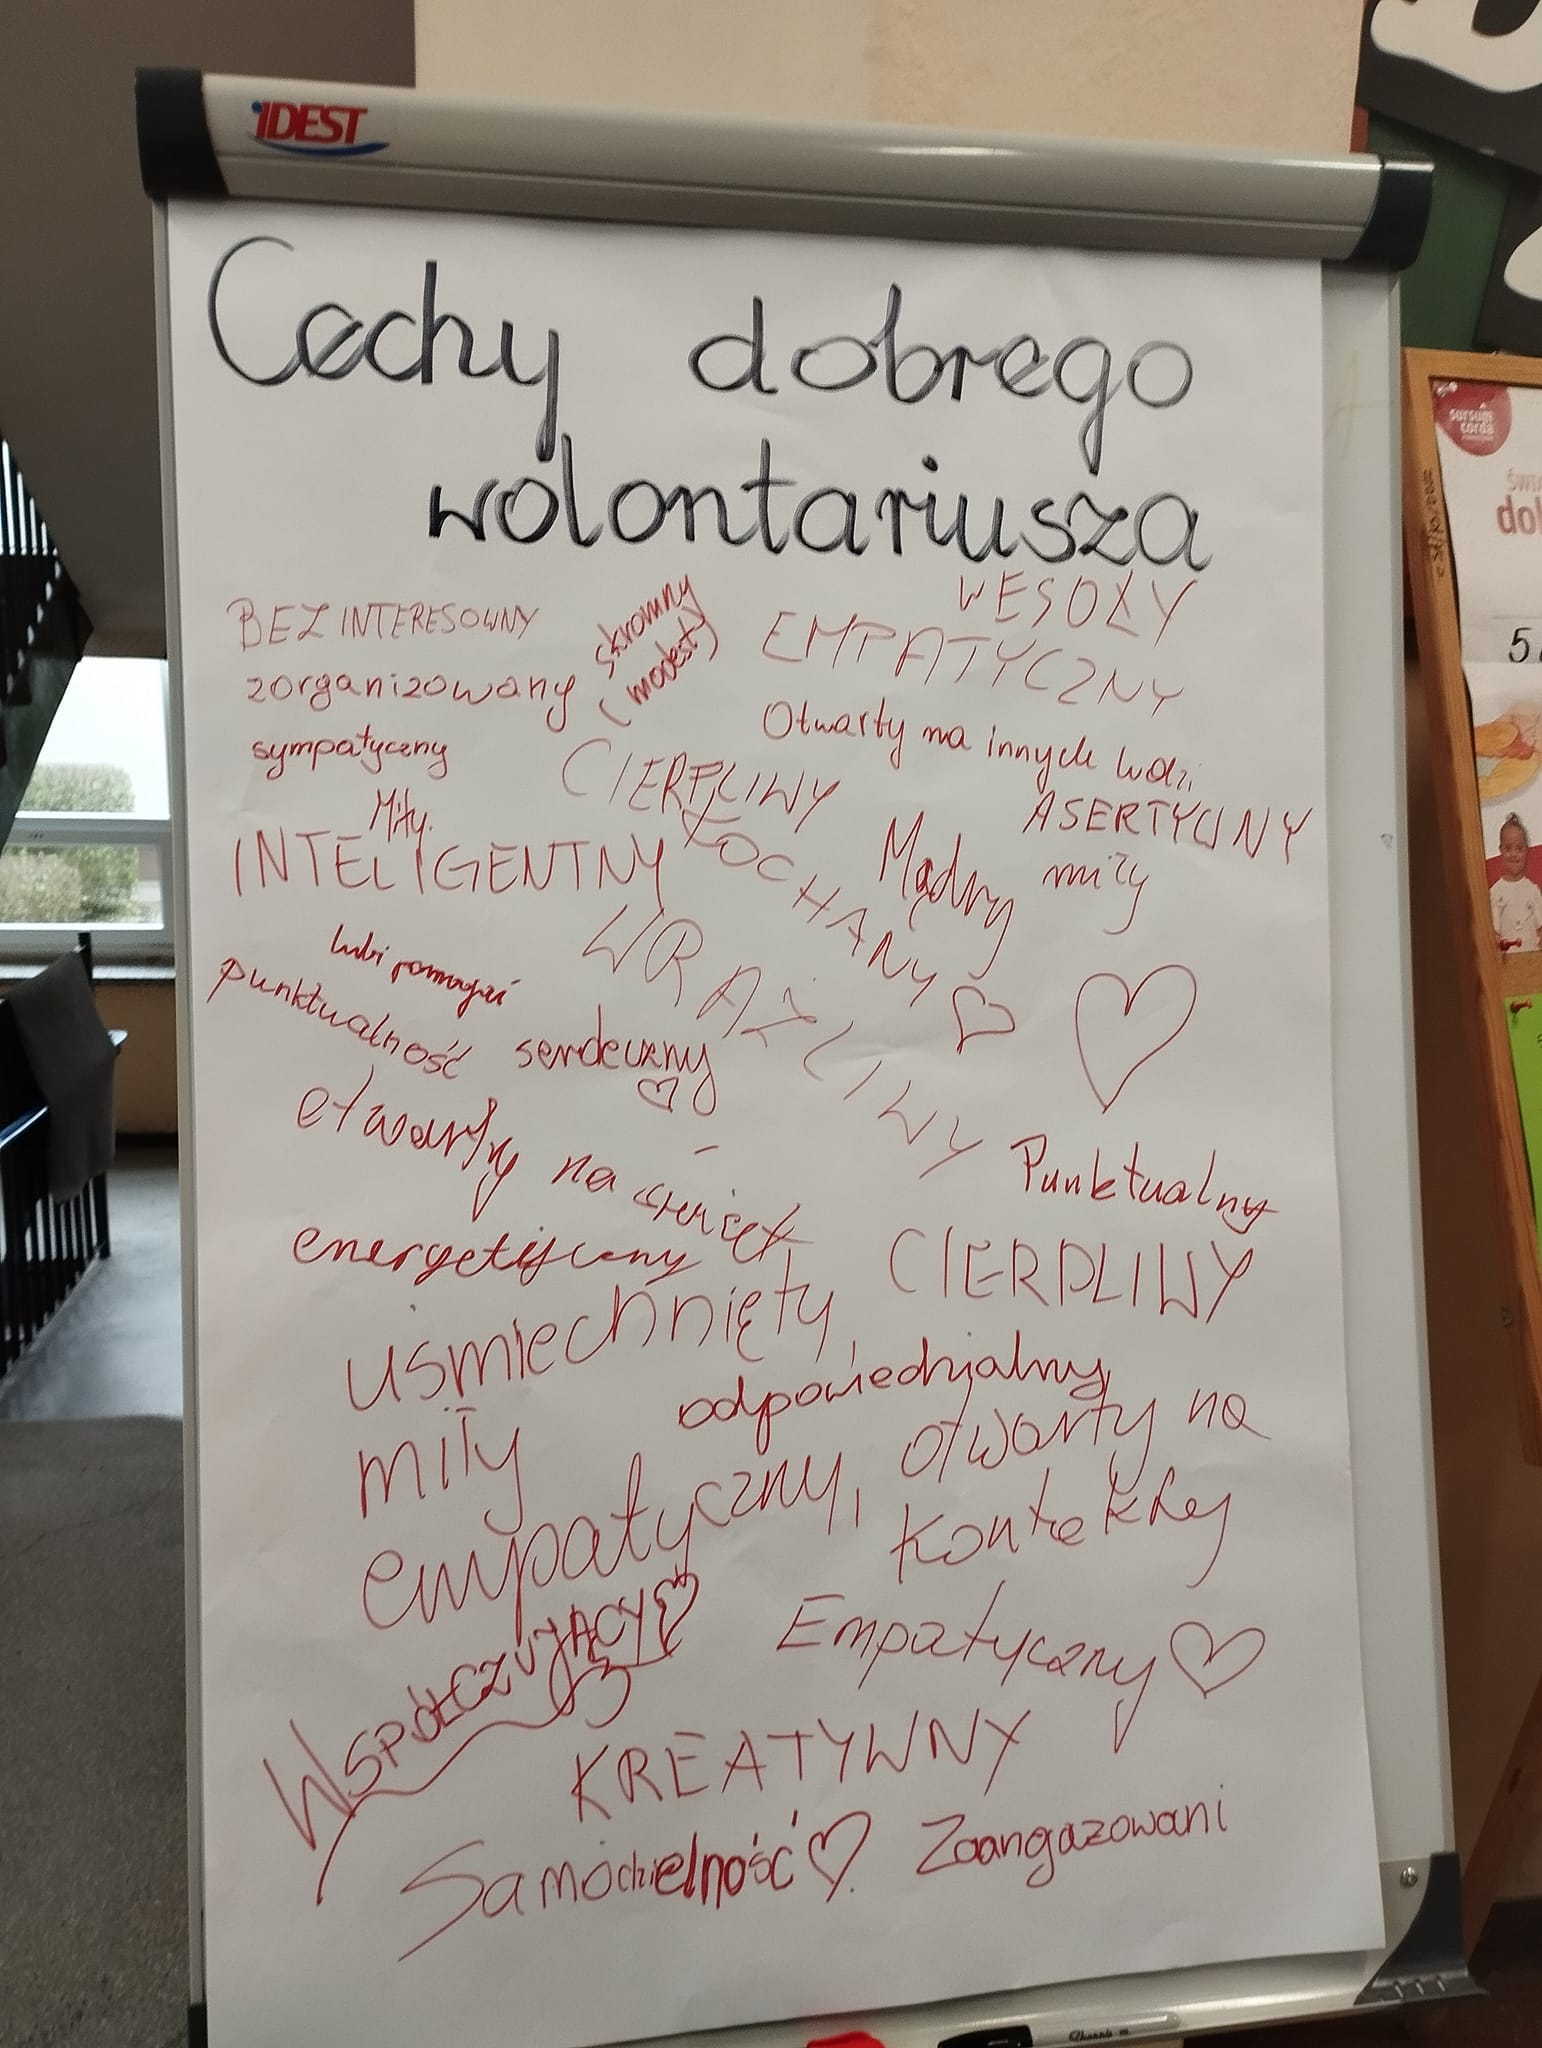 iDEST
Cechy dobrego
wolontariusza
WESOŁY
BEZINTERESOWNY
skromny
(modesty)
EMPATYCZNY
zorganizowany
Otwarty na innych ludzi
sympatyczny
CIERPLIWY
ASERTYWNY
Miły.
INTELIGENTNY
KOCHANY
Mądry
miły
WRAŻLIWY
lubi pomagać
punktualność
serdeczny
otwarty na świat
Punktualny
energetyczny
CIERPLIWY
uśmiechnięty,
odpowiedzialny,
miły
empatyczny, otwarty na
kontakty
WSPÓŁCZUJĄCY
Empatyczny
KREATYWNY
Samodzielność
Zaangazowani
sursum
corda
5